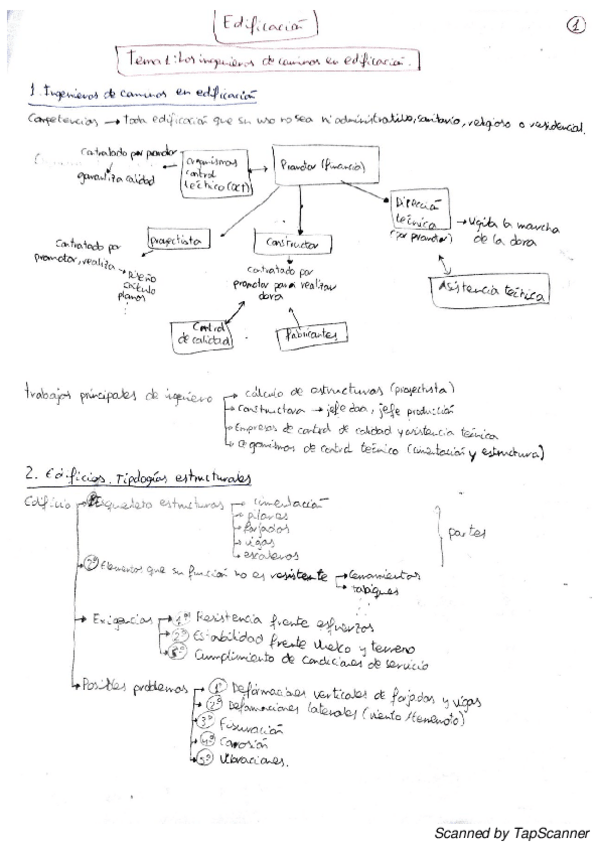 Edificación
1
Tema 1: Los ingenieros de caminos en edificación.
1. Ingenieros de caminos en edificación
Competencias → Toda edificación que su uso no sea ni administrativo, sanitario, religioso o residencial.
Contratado por promotor
garantiza calidad
organismos
control
técnico (OCT)
Promotor (financia)
Dirección
técnica
(por promotor)
→ Vigila la marcha
de la obra
Asistencia técnica
proyectista
Contratado por
promotor, realiza
→ Diseño
cálculo
planos
Constructor
contratado por
promotor para realizar
obra
Control
de calidad
fabricantes
trabajos principales de ingeniero
→ cálculo de estructuras (proyectista)
→ constructora → jefe obra, jefe producción
→ Empresas de control de calidad y asistencia técnica
→ Organismos de control técnico (cimentación y estructura)
2. Edificios. Tipologías estructurales
Edificio
esqueleto estructuras
→ cimentación
→ pilares
→ forjados
→ vigas
→ escaleras
partes
2º Elementos que su función no es resistente → cerramientos
→ tabiques
→ Exigencias
1º Resistencia frente esfuerzos
2º Estabilidad frente vuelco y terreno
3º Cumplimiento de condiciones de servicio
→ Posibles problemas
1º Deformaciones verticales de forjados y vigas
2º Deformaciones laterales (viento/terremoto)
3º Fisuración
4º Corrosión
5º Vibraciones.
Scanned by TapScanner